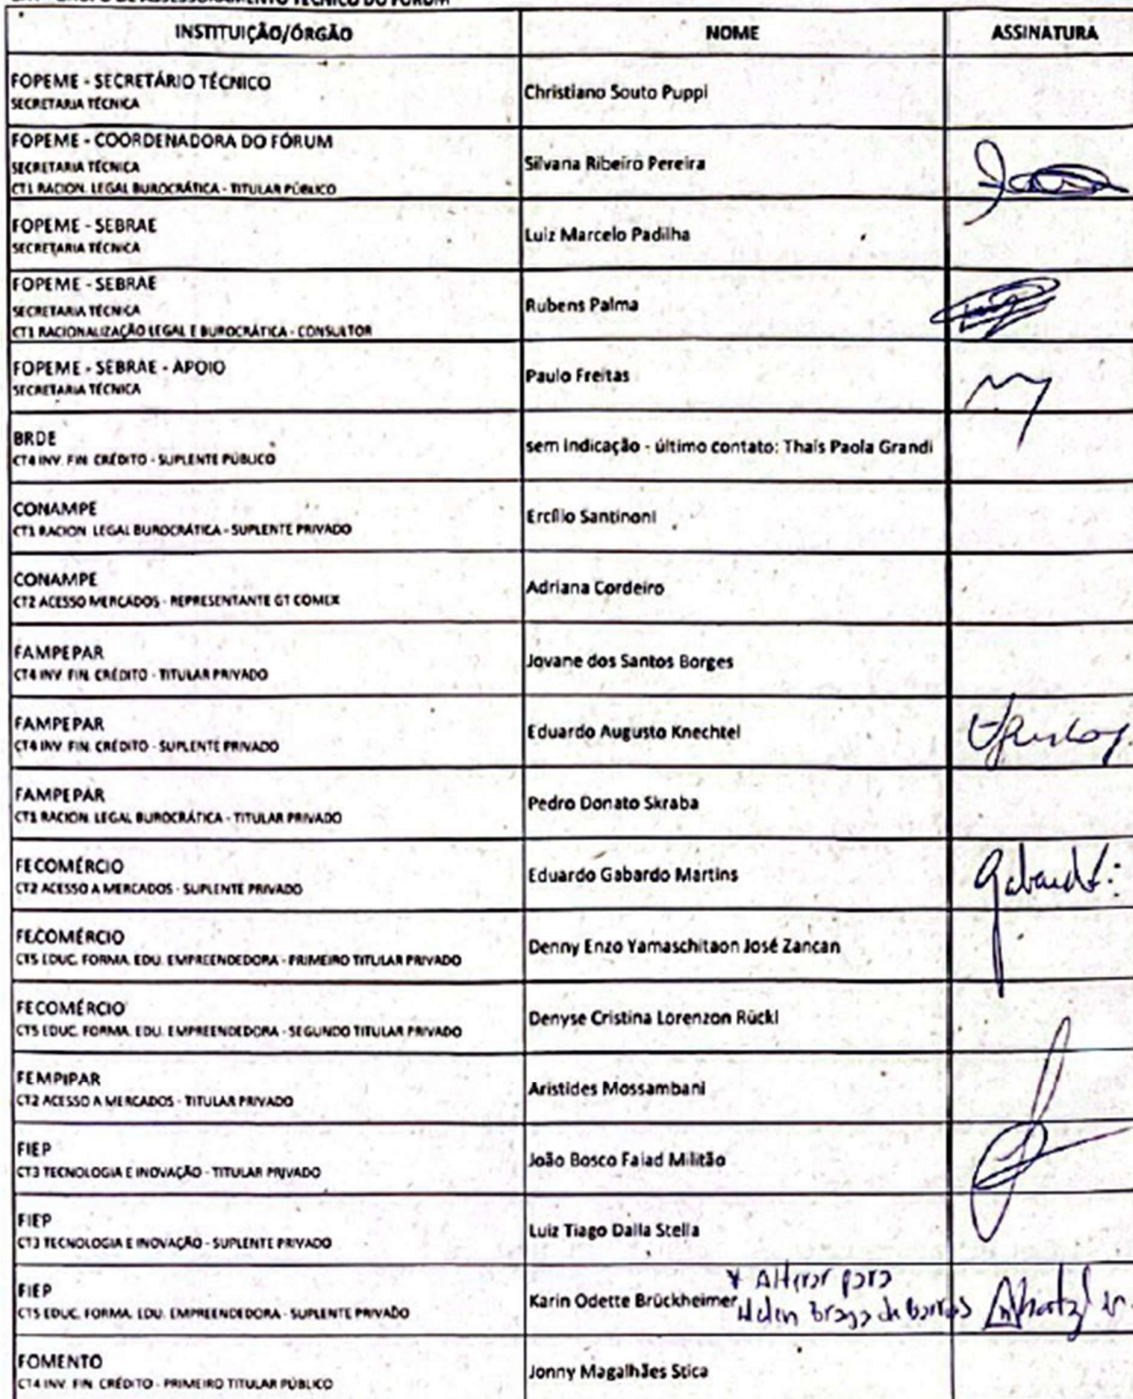 TÉCNICO DO FÓRUM
INSTITUIÇÃO/ÓRGÃO NOME ASSINATURA
FOPEME - SECRETÁRIO TÉCNICO
SECRETARIA TÉCNICA
Christiano Souto Puppi
FOPEME - COORDENADORA DO FÓRUM
SECRETARIA TÉCNICA
CT1 RACION. LEGAL BUROCRÁTICA - TITULAR PÚBLICO
Silvana Ribeiro Pereira
FOPEME - SEBRAE
SECRETARIA TÉCNICA
Luiz Marcelo Padilha
FOPEME - SEBRAE
SECRETARIA TÉCNICA
CT1 RACIONALIZAÇÃO LEGAL E BUROCRÁTICA - CONSULTOR
Rubens Palma
FOPEME - SEBRAE - APOIO
SECRETARIA TÉCNICA
Paulo Freitas
BRDE
CT4 INV. FIN. CRÉDITO - SUPLENTE PÚBLICO
sem indicação - último contato: Thaís Paola Grandi
CONAMPE
CT1 RACION. LEGAL BUROCRÁTICA - SUPLENTE PRIVADO
Ercílio Santinoni
CONAMPE
CT2 ACESSO MERCADOS - REPRESENTANTE GT COMEX
Adriana Cordeiro
FAMPEPAR
CT4 INV. FIN. CRÉDITO - TITULAR PRIVADO
Jovane dos Santos Borges
FAMPEPAR
CT4 INV. FIN. CRÉDITO - SUPLENTE PRIVADO
Eduardo Augusto Knechtel
FAMPEPAR
CT1 RACION. LEGAL BUROCRÁTICA - TITULAR PRIVADO
Pedro Donato Skraba
FECOMÉRCIO
CT2 ACESSO A MERCADOS - SUPLENTE PRIVADO
Eduardo Gabardo Martins
FECOMÉRCIO
CT5 EDUC. FORMA. EDU. EMPREENDEDORA - PRIMEIRO TITULAR PRIVADO
Denny Enzo Yamaschitaon José Zancan
FECOMÉRCIO
CT5 EDUC. FORMA. EDU. EMPREENDEDORA - SEGUNDO TITULAR PRIVADO
Denyse Cristina Lorenzon Rückl
FEMPIPAR
CT2 ACESSO A MERCADOS - TITULAR PRIVADO
Aristides Mossambani
FIEP
CT3 TECNOLOGIA E INOVAÇÃO - TITULAR PRIVADO
João Bosco Faiad Militão
FIEP
CT3 TECNOLOGIA E INOVAÇÃO - SUPLENTE PRIVADO
Luiz Tiago Dalla Stella
FIEP
CT5 EDUC. FORMA. EDU. EMPREENDEDORA - SUPLENTE PRIVADO
Karin Odette Brückheimer
* Alterar para
Helen Braga de Barros
FOMENTO
CT4 INV. FIN. CRÉDITO - PRIMEIRO TITULAR PÚBLICO
Jonny Magalhães Stica